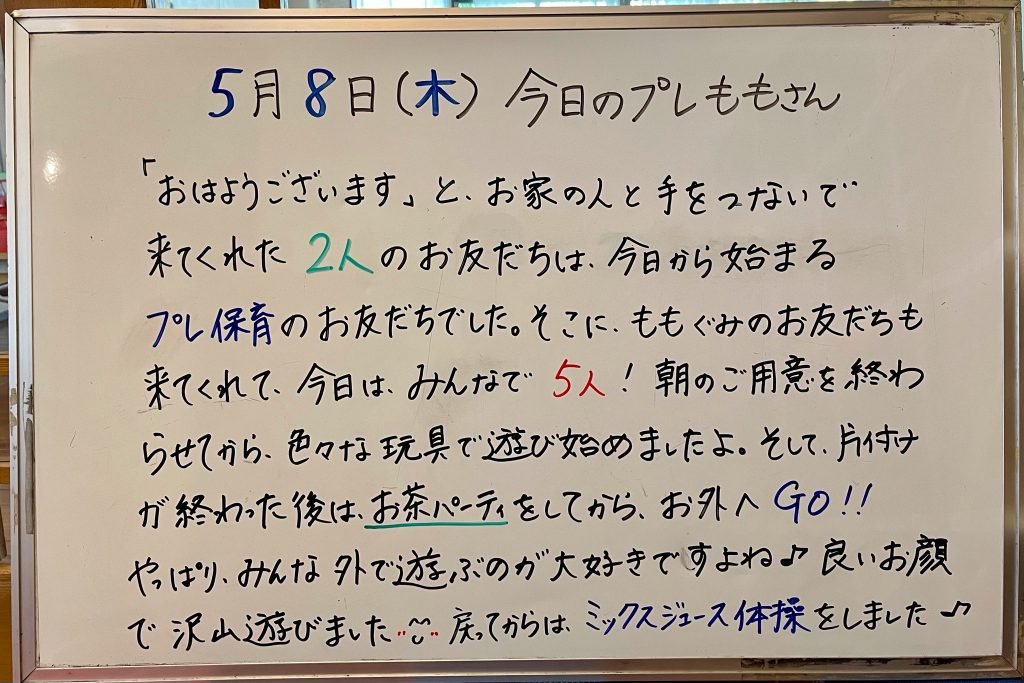 5月8日(木) 今日のプレももさん
「おはようございます」と、お家の人と手をつないで
来てくれた2人のお友だちは、今日から始まる
プレ保育のお友だちでした。そこに、ももぐみのお友だちも
来てくれて、今日は、みんなで5人!朝のご用意を終わ
らせてから、色々な玩具で遊び始めましたよ。そして、片付け
が終わった後は、お茶パーティをしてから、お外へGO!!
やっぱり、みんな外で遊ぶのが大好きですよね♪良いお顔
で沢山遊びました 戻ってからは、ミックスジュース体操をしました♪